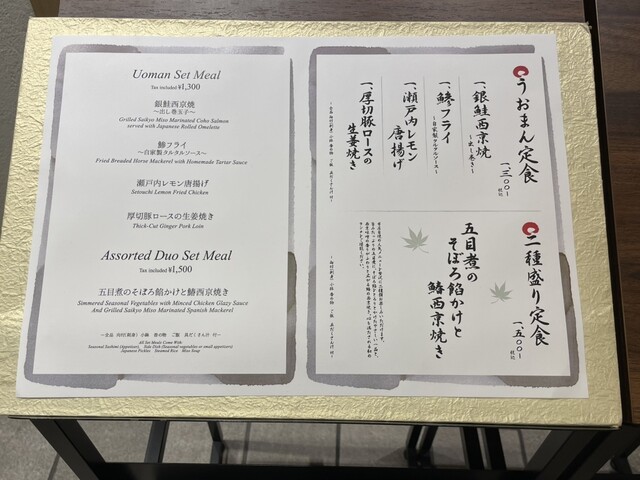 Uoman Set Meal
Tax included ¥1,300
銀鮭西京焼
～出し巻玉子～
Grilled Saikyo Miso Marinated Coho Salmon
served with Japanese Rolled Omelette
鰺フライ
～自家製タルタルソース～
Fried Breaded Horse Mackerel with Homemade Tartar Sauce
瀬戸内レモン唐揚げ
Setouchi Lemon Fried Chicken
厚切豚ロースの生姜焼き
Thick-Cut Ginger Pork Loin
Assorted Duo Set Meal
Tax included ¥1,500
五目煮のそぼろ餡かけと鰆西京焼き
Simmered Seasonal Vegetables with Minced Chicken Glazy Sauce
And Grilled Saikyo Miso Marinated Spanish Mackerel
All Set Meals Come With
Seasonal Sashimi (Appetizer) Side Dish (Seasonal vegetables or small appetizers)
Japanese Pickles Steamed Rice Miso Soup
うおまん定食
一、三〇〇
一、銀鮭西京焼
～出し巻き～
一、鰺フライ
～自家製タルタルソース～
一、瀬戸内レモン
唐揚げ
一、厚切豚ロースの
生姜焼き
二種盛り定食
一、五〇〇
五目煮の
そぼろ餡かけと
鰆西京焼き